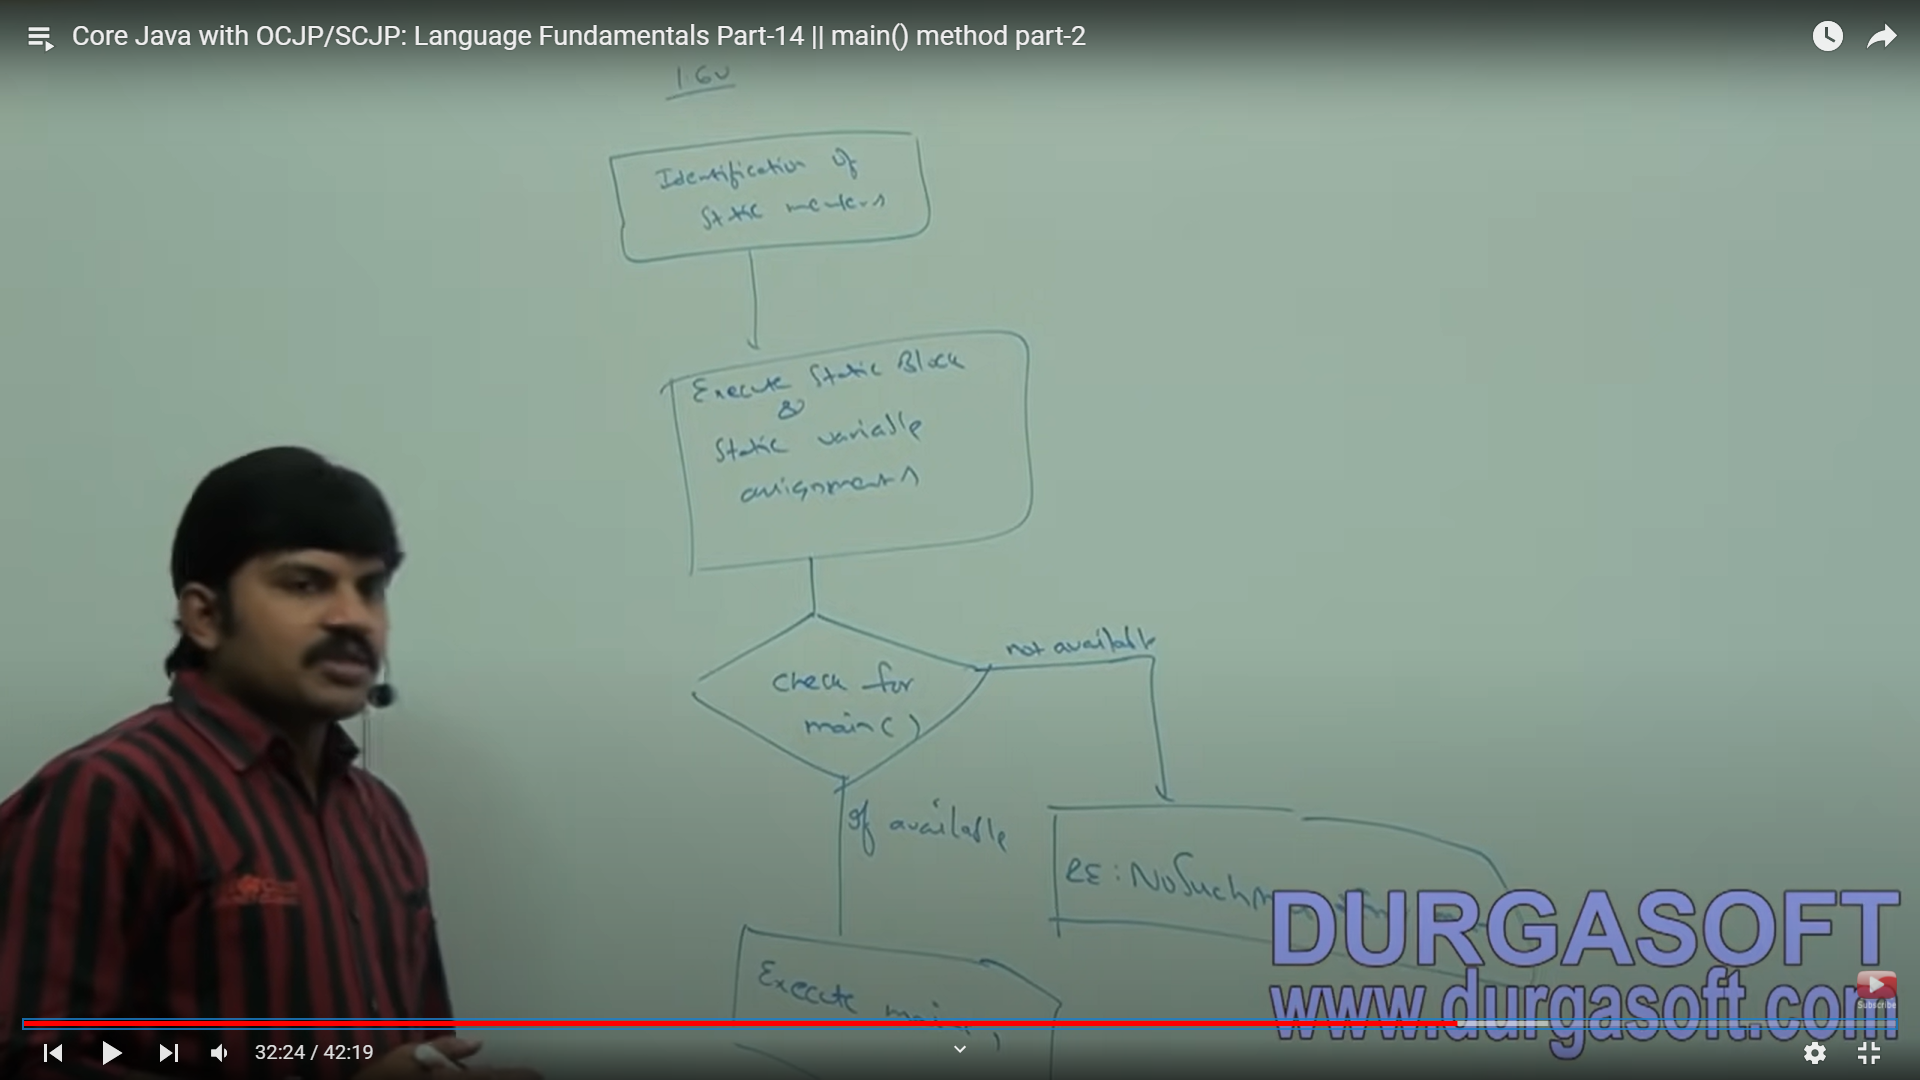 Core Java with OCJP/SCJP: Language Fundamentals Part-14 || main() method part-2
1.6v
Identification of
static members
Execute static Block
&
static variable
assignments
not available
check for
main( )
If available
RE: NoSuchm
Execute main( )
DURGASOFT
www.durgasoft.com
Subscribe
32:24 / 42:19